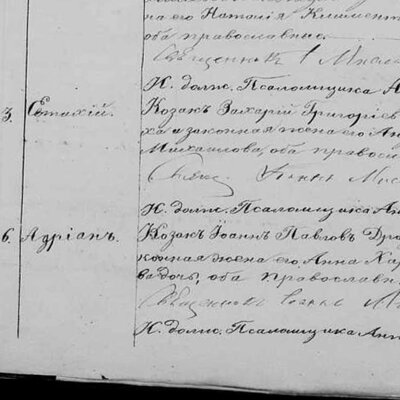 на его Наталія Климент
оба православные
Священникъ
И. долж. Псаломщика А
3. Евтихій. Козакъ Захарій Григоріев
ха и законная жена его Ан
Михайлова, оба правосл
Свящ.
И. долж. Псаломщика Ан
6. Адріанъ. Козакъ Іоаннъ Павловъ Дро
конная жена его Анна Хар
ва дочь, оба православн
Священникъ
И. долж. Псаломщика Ант